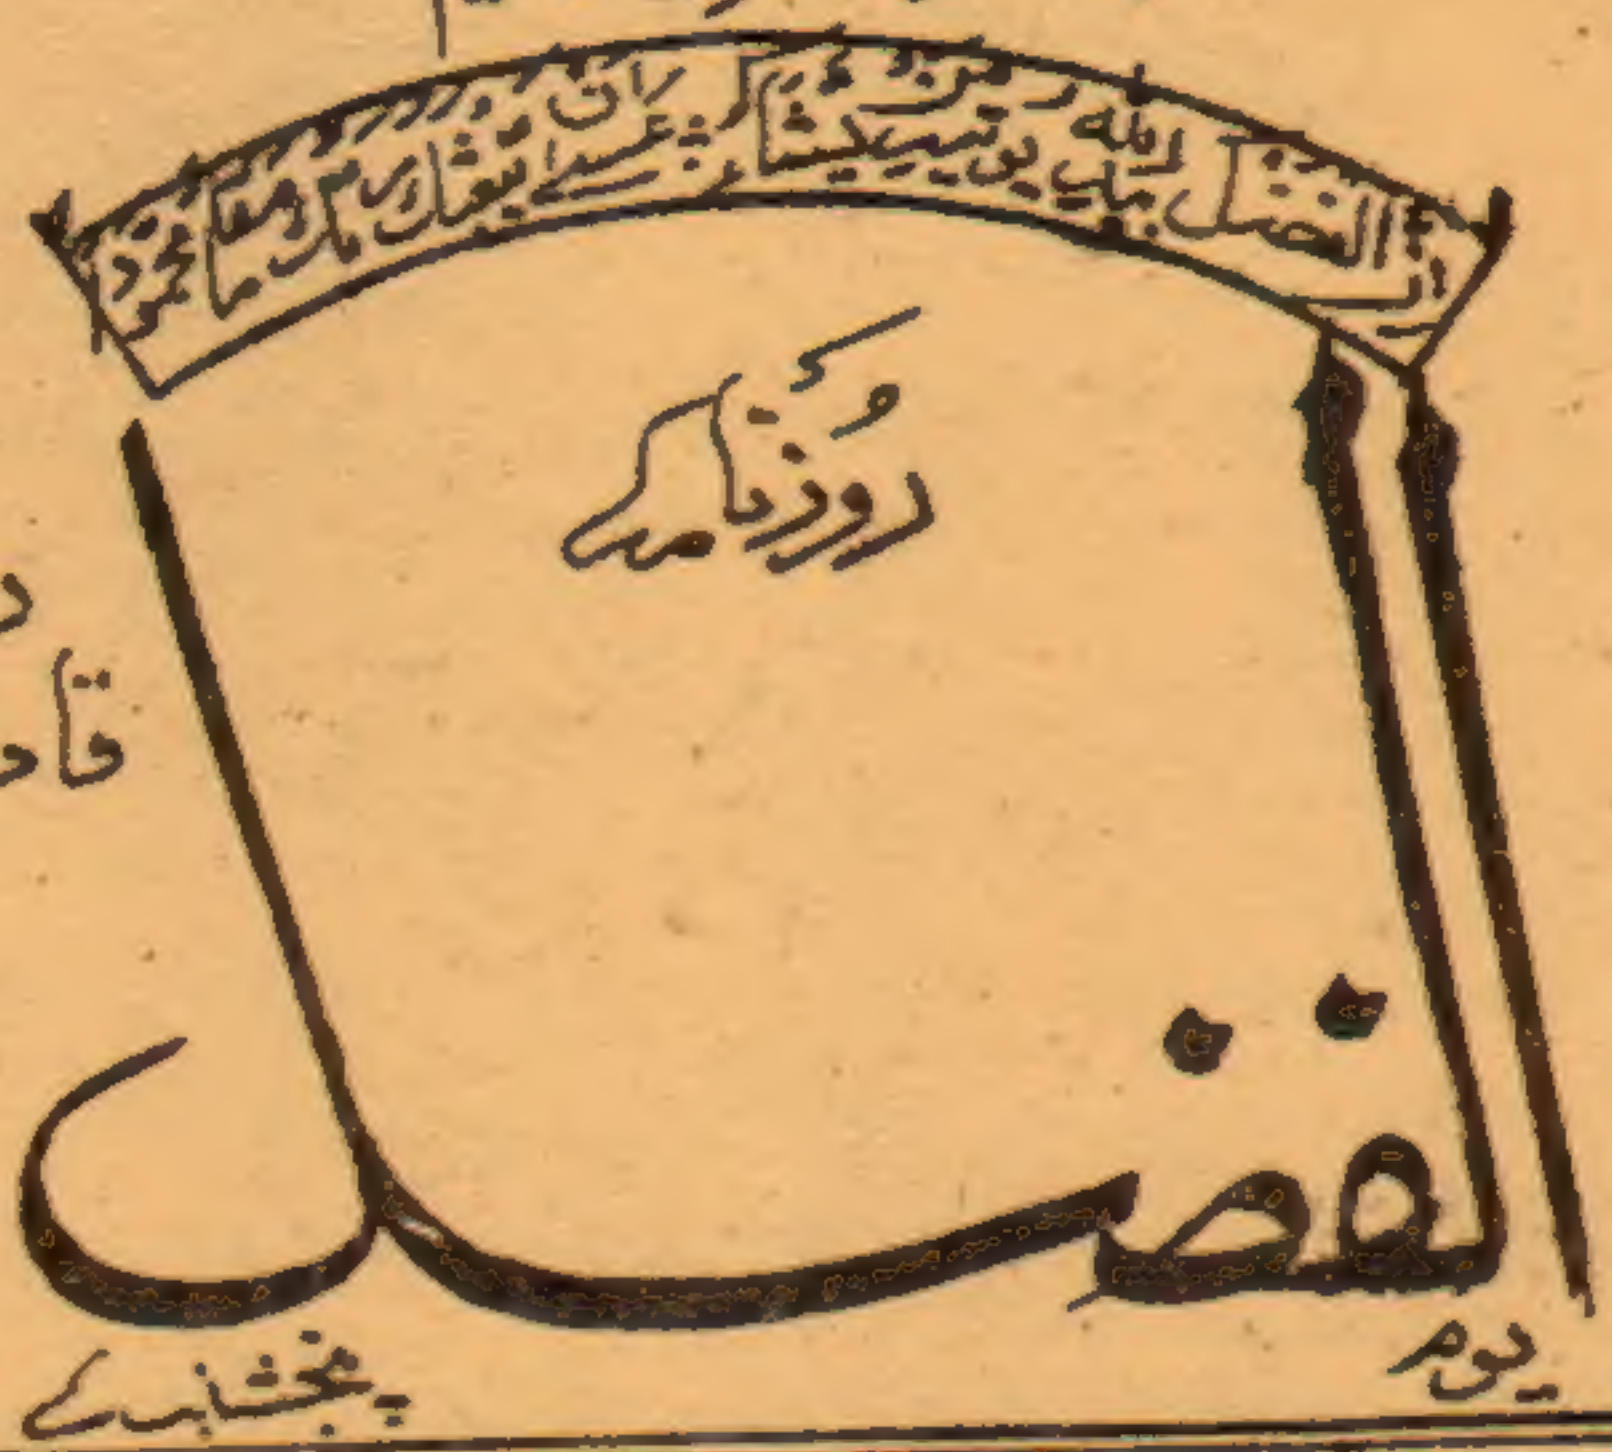 ان الفضل بید اللہ یوتیہ من یشاء عسے ان یبعثک ربک مقاما محمودا
روزنامہ
الفضل
قاد
یوم پنجشنبہ